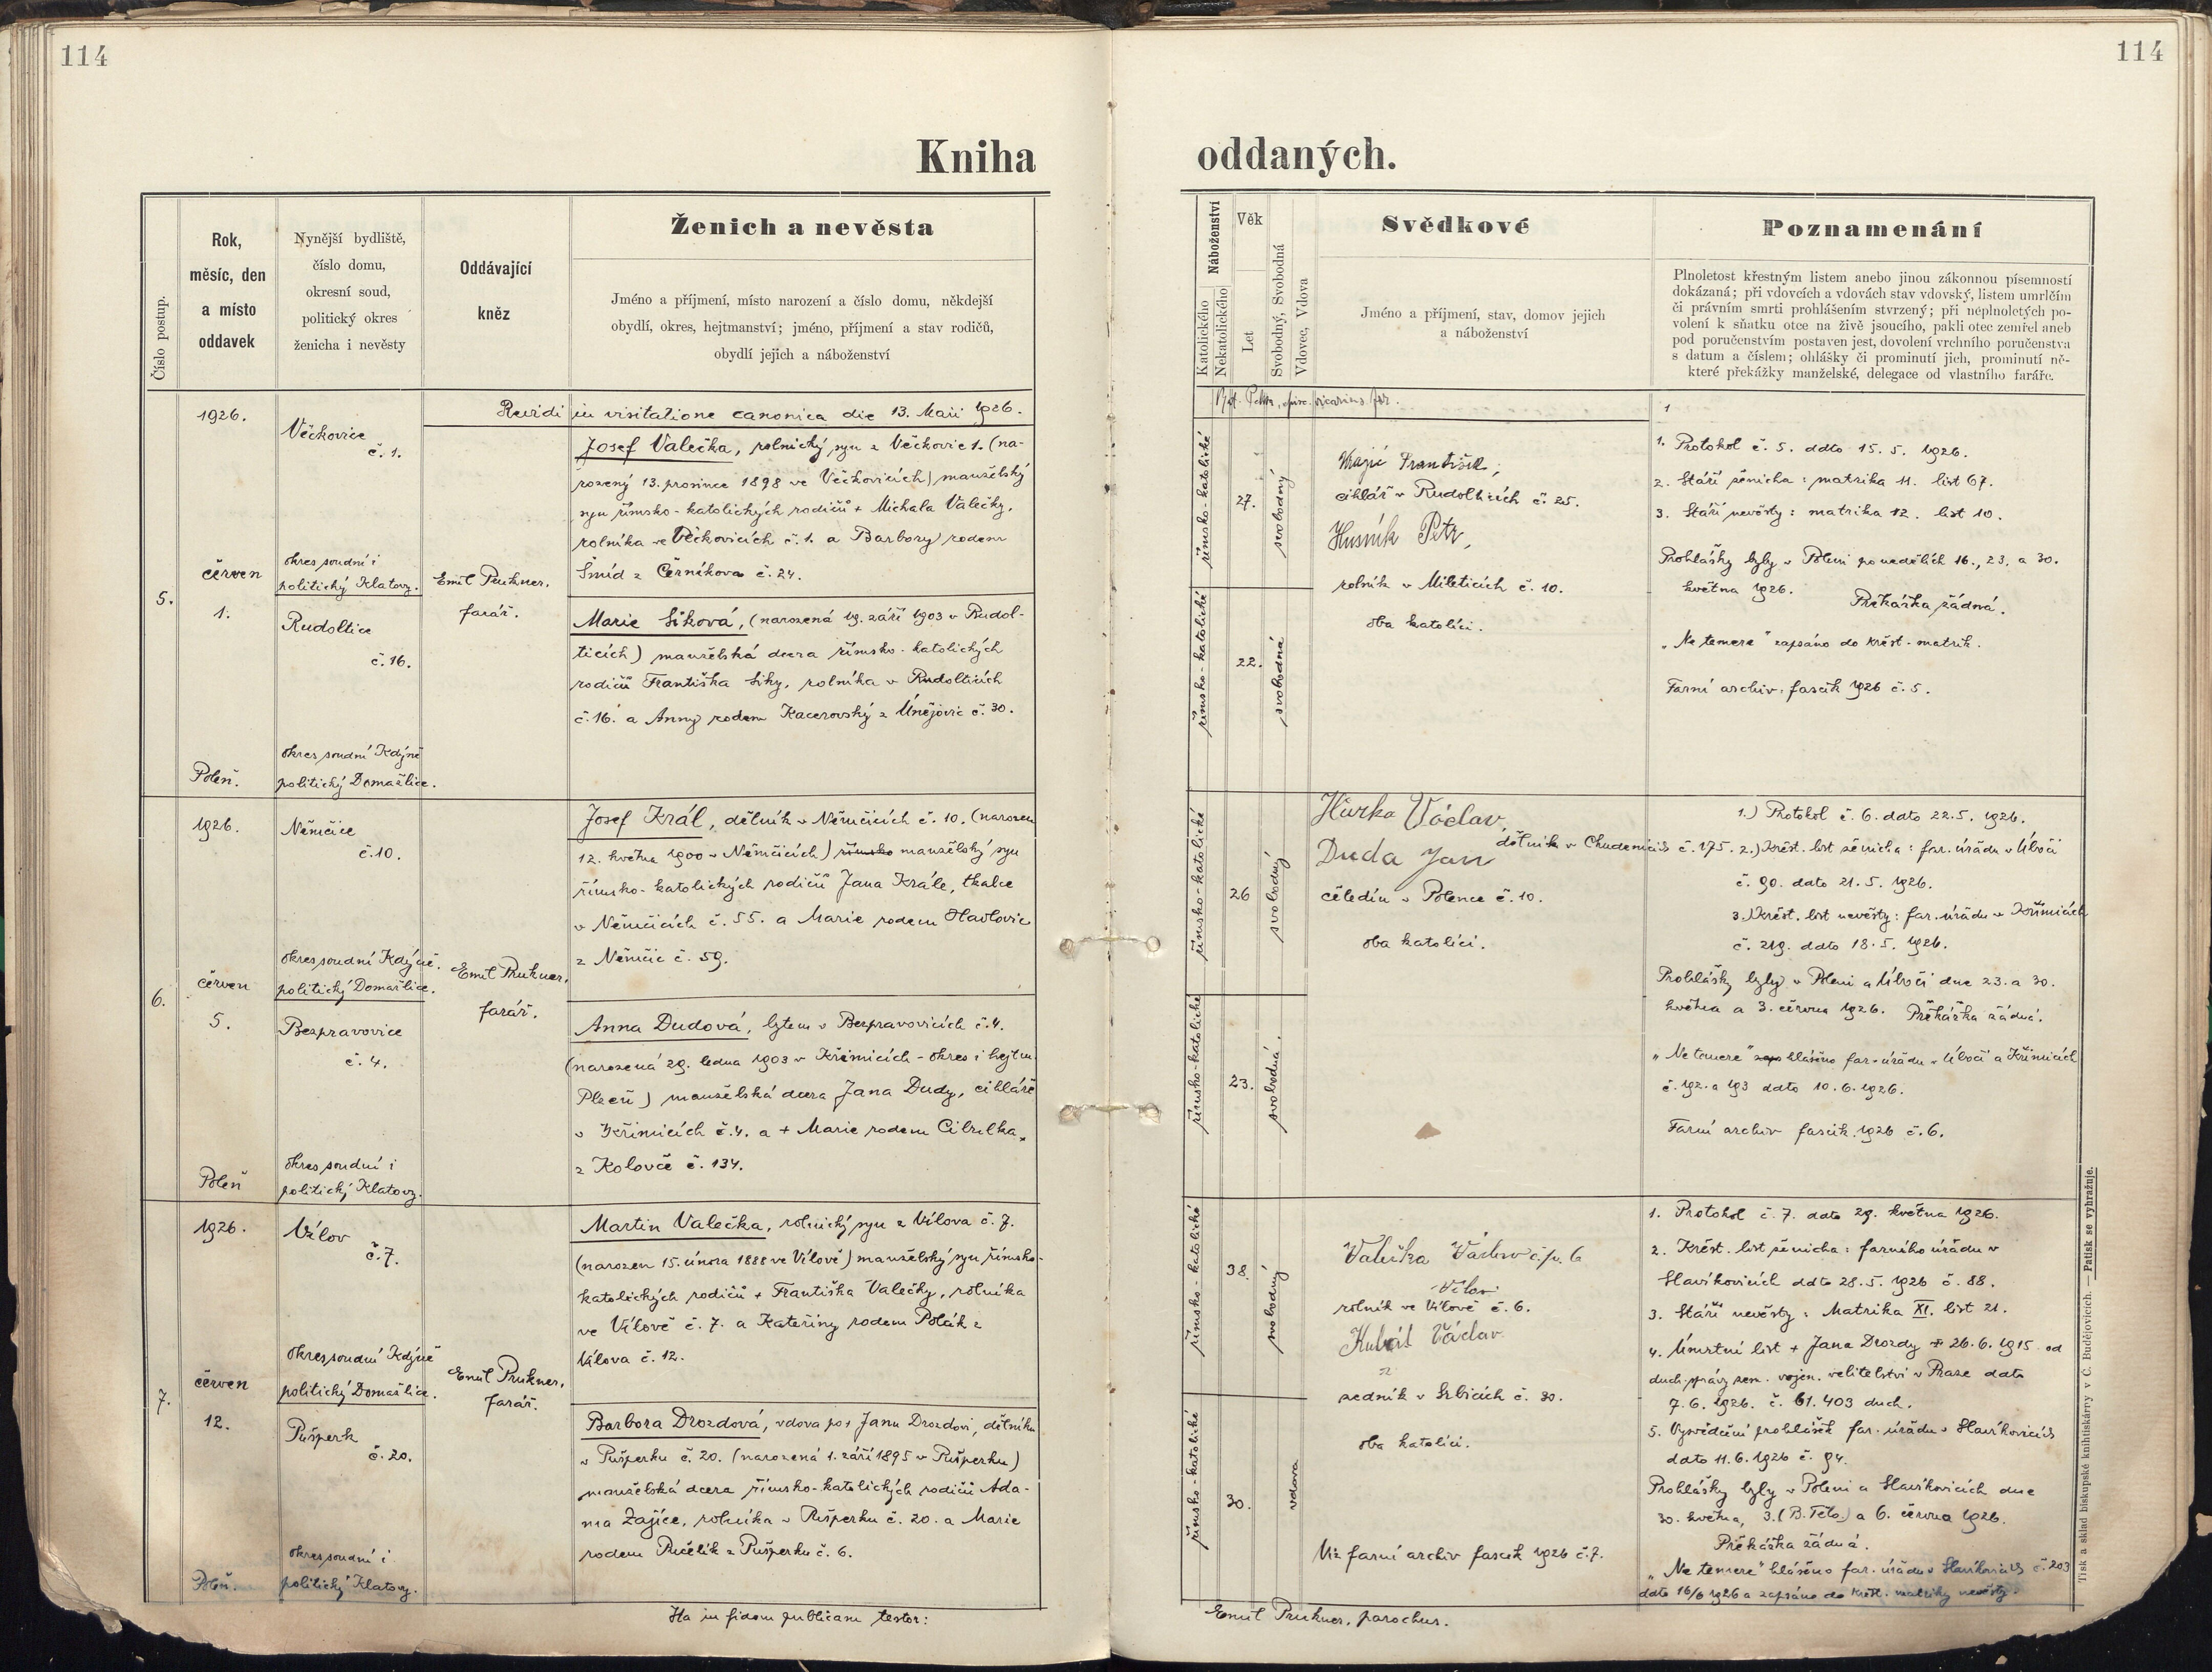 114
114
Kniha
oddaných.
Číslo postup.
Rok,
měsíc, den
a místo
oddavek
Nynější bydliště,
číslo domu,
okresní soud,
politický okres
ženicha i nevěsty
Oddávající
kněz
Ženich a nevěsta
Jméno a příjmení, místo narození a číslo domu, někdejší
obydlí, okres, hejtmanství; jméno, příjmení a stav rodičů,
obydlí jejich a náboženství
Náboženství
Katolického
Nekatolického
Věk
Let
Svobodný, Svobodná
Vdovec, Vdova
Svědkové
Jméno a příjmení, stav, domov jejich
a náboženství
Poznamenání
Plnoletost křestným listem anebo jinou zákonnou písemností
dokázaná; při vdovcích a vdovách stav vdovský, listem umrlčím
či právním smrti prohlášením stvrzený; při neplnoletých po-
volení k sňatku otce na živě jsoucího, pakli otec zemřel aneb
pod poručenstvím postaven jest, dovolení vrchního poručenstva
s datum a číslem; ohlášky či prominutí jich, prominutí ně-
které překážky manželské, delegace od vlastního faráře.
Revidi in visitatione canonica die 13. Maii 1926.
vicarius for.
5.
1926.
červen
1.
Poleň.
Věčkovice
č. 1.
okres soudní i
politický Klatovy.
Rudoltice
č. 16.
okres soudní Kdýně
politický Domažlice.
Emil Prukner,
farář.
Josef Valečka, rolnický syn z Věčkovic 1. (na-
rozený 13. prosince 1898 ve Věčkovicích) manželský
syn římsko-katolických rodičů + Michala Valečky,
rolníka ve Věčkovicích č. 1. a Barbory rodem
Šmíd z Černíkova č. 24.
Marie Siková, (narozená 19. září 1903 v Rudol-
ticích) manželská dcera římsko-katolických
rodičů Františka Siky, rolníka v Rudolticích
č. 16. a Anny rodem Kacerovský z Únějovic č. 30.
římsko-katolické
27.
svobodný
římsko-katolické
22.
svobodná
František,
cihlář v Rudolticích č. 25.
Husník Petr,
rolník v Mileticích č. 10.
oba katolíci.
1
1. Protokol č. 5. ddto 15. 5. 1926.
2. Stáří ženicha: matrika 11. list 67.
3. Stáří nevěsty: matrika 12. list 10.
Prohlášky byly v Poleni po nedělích 16., 23. a 30.
května 1926. Překážka žádná.
„Ne temere" zapsáno do křest. matrik.
Farní archiv, fascik 1926 č. 5.
6.
1926.
červen
5.
Poleň
Němčice
č. 10.
okres soudní Kdýně.
politický Domažlice.
Bezpravovice
č. 4.
okres soudní i
politický Klatovy.
Emil Prukner,
farář.
Josef Král, dělník v Němčicích č. 10. (narozen
12. května 1900 v Němčicích) římsko manželský syn
římsko-katolických rodičů Jana Krále, tkalce
v Němčicích č. 55. a Marie rodem Havlovic
z Němčic č. 59.
Anna Dudová, bytem v Bezpravovicích č. 4.
(narozená 29. ledna 1903 v Křimicích - okres i hejtm.
Plzeň) manželská dcera Jana Dudy, cihláře
v Křimicích č. 4. a + Marie rodem Cibulka
z Koloveč č. 134.
římsko-katolické
26
svobodný
římsko-katolické
23.
svobodná.
Hurka Václav,
dělník v Chudenicích č. 175.
Duda Jan
čeledín v Polence č. 10.
oba katolíci.
1.) Protokol č. 6. dato 22. 5. 1926.
2.) Křest. list ženicha: far. úřadu v Úbočí
č. 90. dato 21. 5. 1926.
3. Křest. list nevěsty: far. úřadu v Křimicích
č. 219. dato 18. 5. 1926.
Prohlášky byly v Poleni a Úbočí dne 23. a 30.
května a 3. června 1926. Překážka žádná.
„Ne temere" hlášeno far. úřadu v Úbočí a Křimicích
č. 192. a 193 ddto 10. 6. 1926.
Farní archiv fascik. 1926 č. 6.
7.
1926.
červen
12.
Poleň.
Vílov
č. 7.
okres soudní Kdýně
politický Domažlice.
Pušperk
č. 20.
okres soudní i
politický Klatovy.
Emil Prukner,
farář.
Martin Valečka, rolnický syn z Vílova č. 7.
(narozen 15. února 1888 ve Vílově) manželský syn římsko-
katolických rodičů + Františka Valečky, rolníka
ve Vílově č. 7. a Kateřiny rodem Polák z
Vílova č. 12.
Barbora Drozdová, vdova po + Janu Drozdovi, dělníku
v Pušperku č. 20. (narozená 1. září 1895 v Pušperku)
manželská dcera římsko-katolických rodičů Ada-
ma Zajíce, rolníka v Pušperku č. 20. a Marie
rodem Pučelík z Pušperku č. 6.
římsko-katolické
38.
svobodný
římsko-katolické
30.
vdova
Valečka Václav č.p. 6
Vílov
rolník ve Vílově č. 6.
Kubát Václav
z
sedník v Srbicích č. 30.
oba katolíci.
Viz farní archiv fascik 1926 č. 7.
1. Protokol č. 7. dato 29. května 1926.
2. Křest. list ženicha: farního úřadu v
Slavíkovicích ddto 28. 5. 1926 č. 88.
3. Stáří nevěsty: Matrika XI. list 21.
4. Úmrtní list + Jana Drozdy + 26. 6. 1915 od
duch. správy zem. vojen. velitelství v Praze dato
7. 6. 1926. č. 61.403 duch.
5. Vysvědčení prohlášek far. úřadu v Slavíkovicích
dato 11. 6. 1926 č. 94.
Prohlášky byly v Poleni a Slavíkovicích dne
30. května, 3. (B. Tělo) a 6. června 1926.
Překážka žádná.
„Ne temere" hlášeno far. úřadu v Slavíkovicích č. 203
dato 16/6 1926 a zapsáno do křest. matriky nevěsty.
Ita in fidem publicam testor:
Emil Prukner, parochus.
Tisk a sklad biskupské knihtiskárny v Č. Budějovicích. — Patisk se vyhražuje.